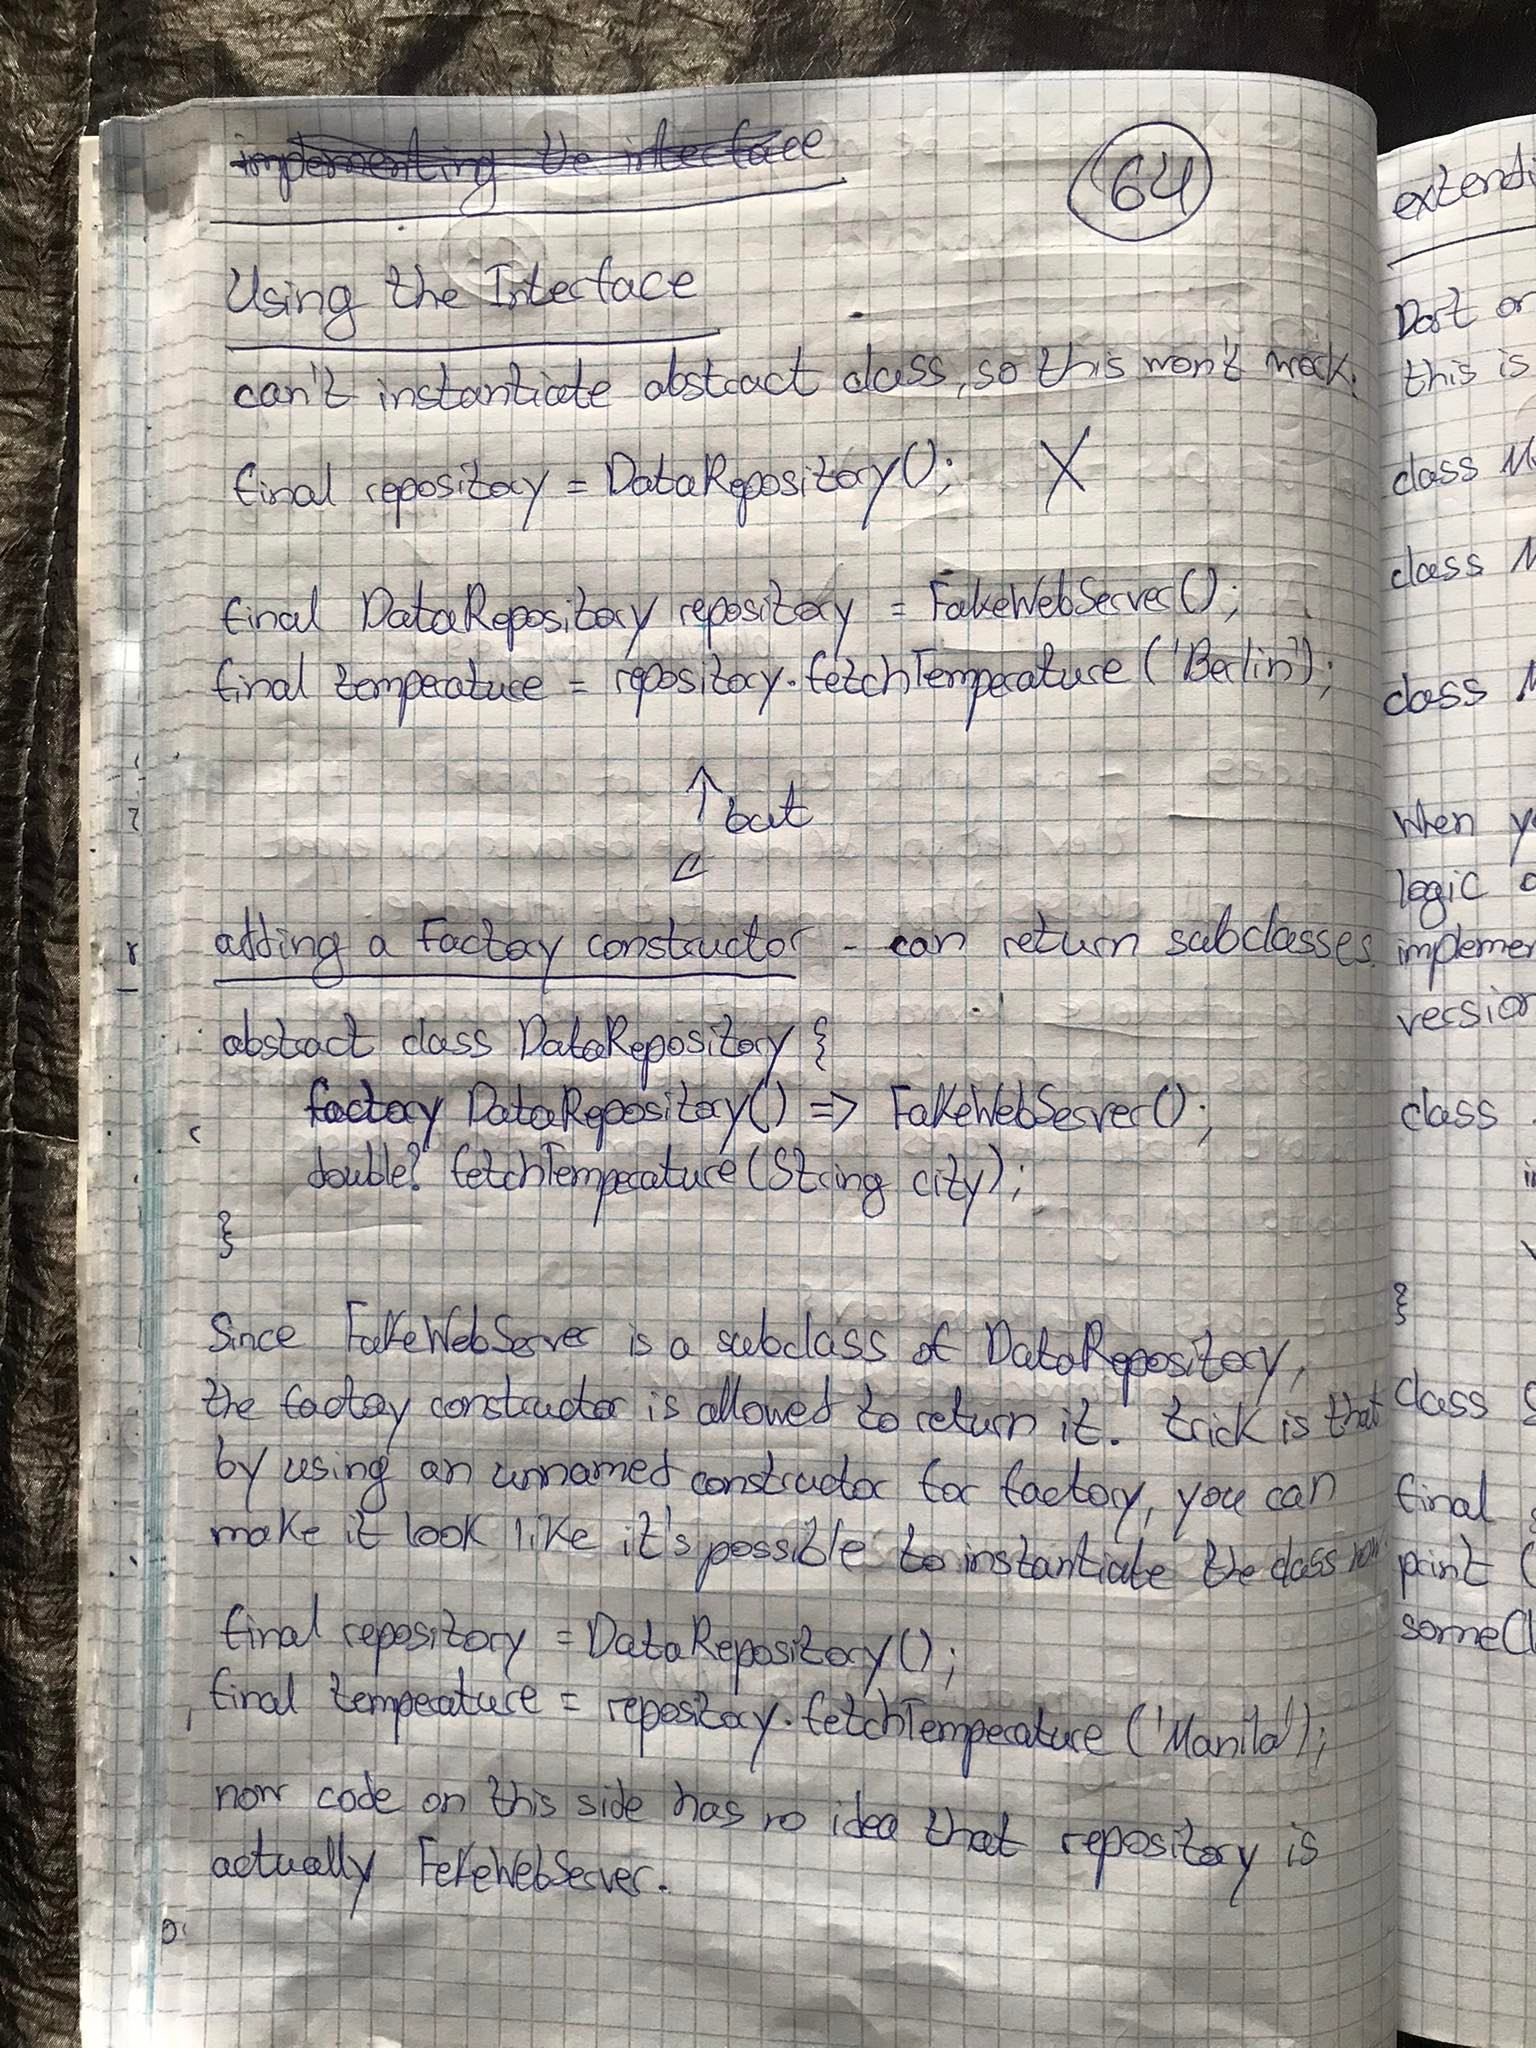 implementing the interface
64
Using the Interface
can't instantiate abstract class, so this won't work.
final repository = DataRepository(); X
final DataRepository repository = FakeWebServer();
final temperature = repository.fetchTemperature('Berlin');
↑ but
adding a factory constructor - can return subclasses
abstract class DataRepository {
factory DataRepository() => FakeWebServer();
double? fetchTemperature(String city);
}
Since FakeWebServer is a subclass of DataRepository,
the factory constructor is allowed to return it. trick is that
by using an unnamed constructor for factory, you can
make it look like it's possible to instantiate the class now.
final repository = DataRepository();
final temperature = repository.fetchTemperature('Manila');
now code on this side has no idea that repository is
actually FekeWebServer.
extendi
Dart
this is
class
class
class
When
logic
implemen
version
class
}
class
final
print (
someCl